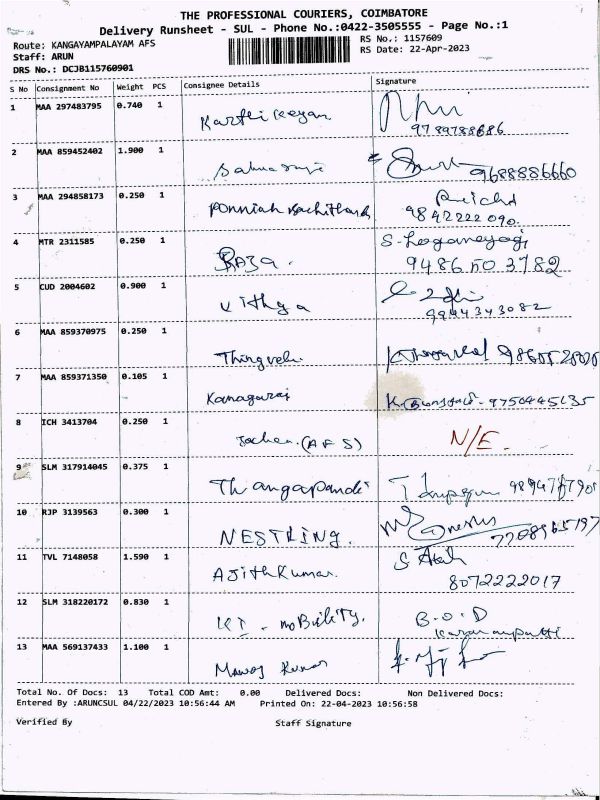 THE PROFESSIONAL COURIERS, COIMBATORE
Delivery Runsheet - SUL - Phone No.:0422-3505555 - Page No.:1
Route: KANGAYAMPALAYAM AFS RS No.: 1157609
Staff: ARUN RS Date: 22-Apr-2023
DRS No.: DCJB115760901
S No Consignment No Weight PCS Consignee Details Signature
1 MAA 297483795 0.740 1 Karthikeyan 9789788686
2 MAA 859452402 1.900 1 9688886660
3 MAA 294858173 0.250 1 Ponniah 9842222090
4 MTR 2311585 0.250 1 RAJA. S. Loganayagi
9486503782
5 CUD 2004602 0.900 1 Vithya 9944343082
6 MAA 859370975 0.250 1 Thingvelu
7 MAA 859371350 0.105 1 Kanagaraj 9750445135
8 ICH 3413704 0.250 1 (AFS) N/E.
9 SLM 317914045 0.375 1 Thangapandi
10 RJP 3139563 0.300 1 NESTRING. 7708965197
11 TVL 7148058 1.590 1 Ajithkumar. 8072222017
12 SLM 318220172 0.830 1 KI - mobility. B.O.D
13 MAA 569137433 1.100 1 Manoj Kumar
Total No. Of Docs: 13 Total COD Amt: 0.00 Delivered Docs: Non Delivered Docs:
Entered By :ARUNCSUL 04/22/2023 10:56:44 AM Printed On: 22-04-2023 10:56:58
Verified By Staff Signature